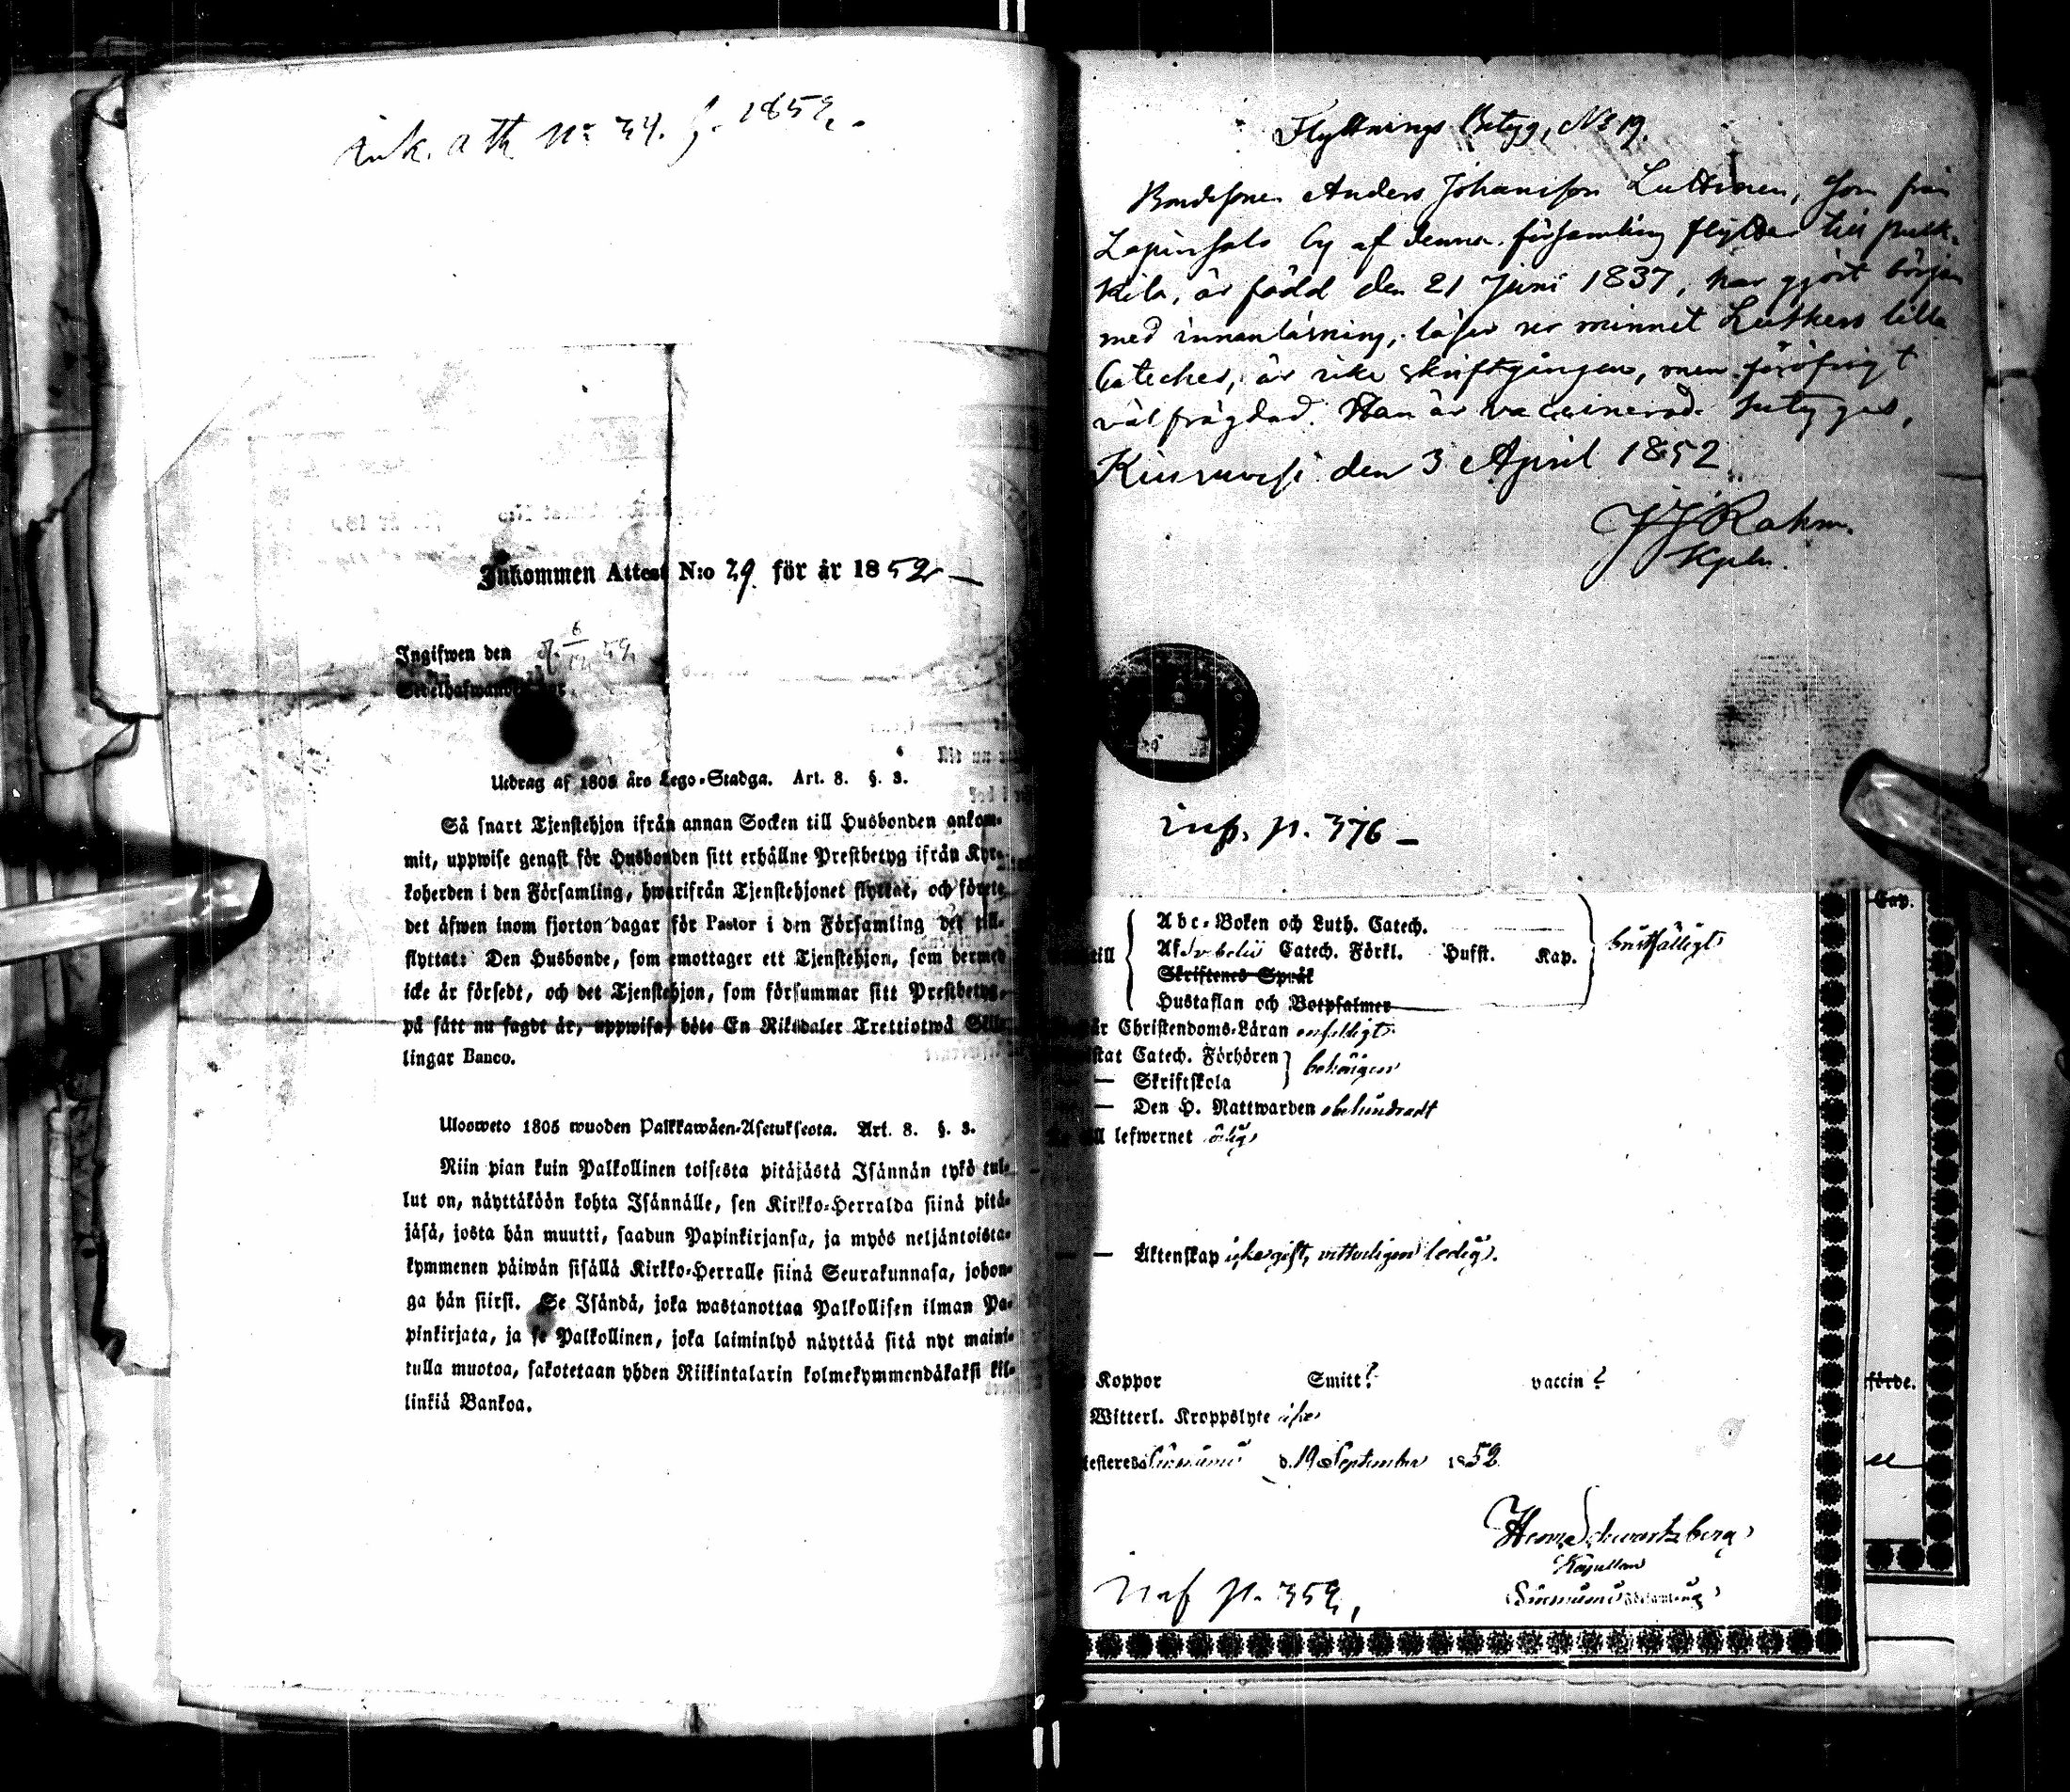 ink. att No 34. f. 1852.
Inkommen Attest N:o 29. för år 1852
Ingifwen den
Sedelhafwande
Utdrag af 1805 års Lego-Stadga. Art. 8. §. 3.
Så snart Tjenstehjon ifrån annan Socken till Husbonden ankom-
mit, uppwise genast för Husbonden sitt erhållne Prestbetyg ifrån Kyr-
koherden i den Församling, hwarifrån Tjenstehjonet flyttat, och förete
det äfwen inom fjorton dagar för Pastor i den Församling det till-
flyttat: Den Husbonde, som emottager ett Tjenstehjon, som dermed
icke är försedt, och det Tjenstehjon, som försummar sitt Prestbetyg,
på sätt nu sagdt är, uppwisa, böte En Riksdaler Trettiotwå Skil-
lingar Banco.
Ulosweto 1805 wuoden Palkkawäen-Asetuksesta. Art. 8. §. 3.
Niin pian kuin Palkollinen toisesta pitäjästä Isännän tykö tul-
lut on, näyttäköön kohta Isännälle, sen Kirkko-Herralda siinä pitä-
jäsä, josta hän muutti, saadun Papinkirjansa, ja myös neljäntoista-
kymmenen päiwän sisällä Kirkko-Herralle siinä Seurakunnasa, johon-
ga hän siirsi. Se Isändä, joka wastanottaa Palkollisen ilman Pa-
pinkirjata, ja se Palkollinen, joka laiminlyö näyttää sitä nyt maini-
tulla muotoa, sakotetaan yhden Riikintalarin kolmekymmendäkaksi kil-
linkiä Bankoa.
Flyttnings Betyg, No 19.
Bondesonen Anders Johansson Luttinen, som från
Lapinsalo by af denna församling flyttar till Pulk-
kila, är född den 21 Juni 1837, har gjort början
med innanläsning, läser ur minnet Luthers lilla
Cateches, är icke skriftgången, men föröfrigt
välfrägdad. Han är vaccinerad. betygas,
Kiuruvesi den 3 April 1852.
JJ Rahm.
Kpln.
inf. p. 376
till Abc-Boken och Luth. Catech.
Af Svebelii Catech. Förkl. Hufst. Kap. bristfälligt
Skriftenes Språk
Hustaflan och Botpsalmer
Christendoms-Läran enfaldigt
Catech. Förhören behörigen
— Skriftskola
— Den H. Nattwarden obehindradt
till lefwernet ärlig
— — Äktenskap icke gift, vitterligen ledig.
Koppor Smitt? vaccin?
Witterl. Kroppslyte icke
d. 19 September 1852
Herm Schwartzberg
Kapellan
Församling
inf p. 352,
Cap.
förde.